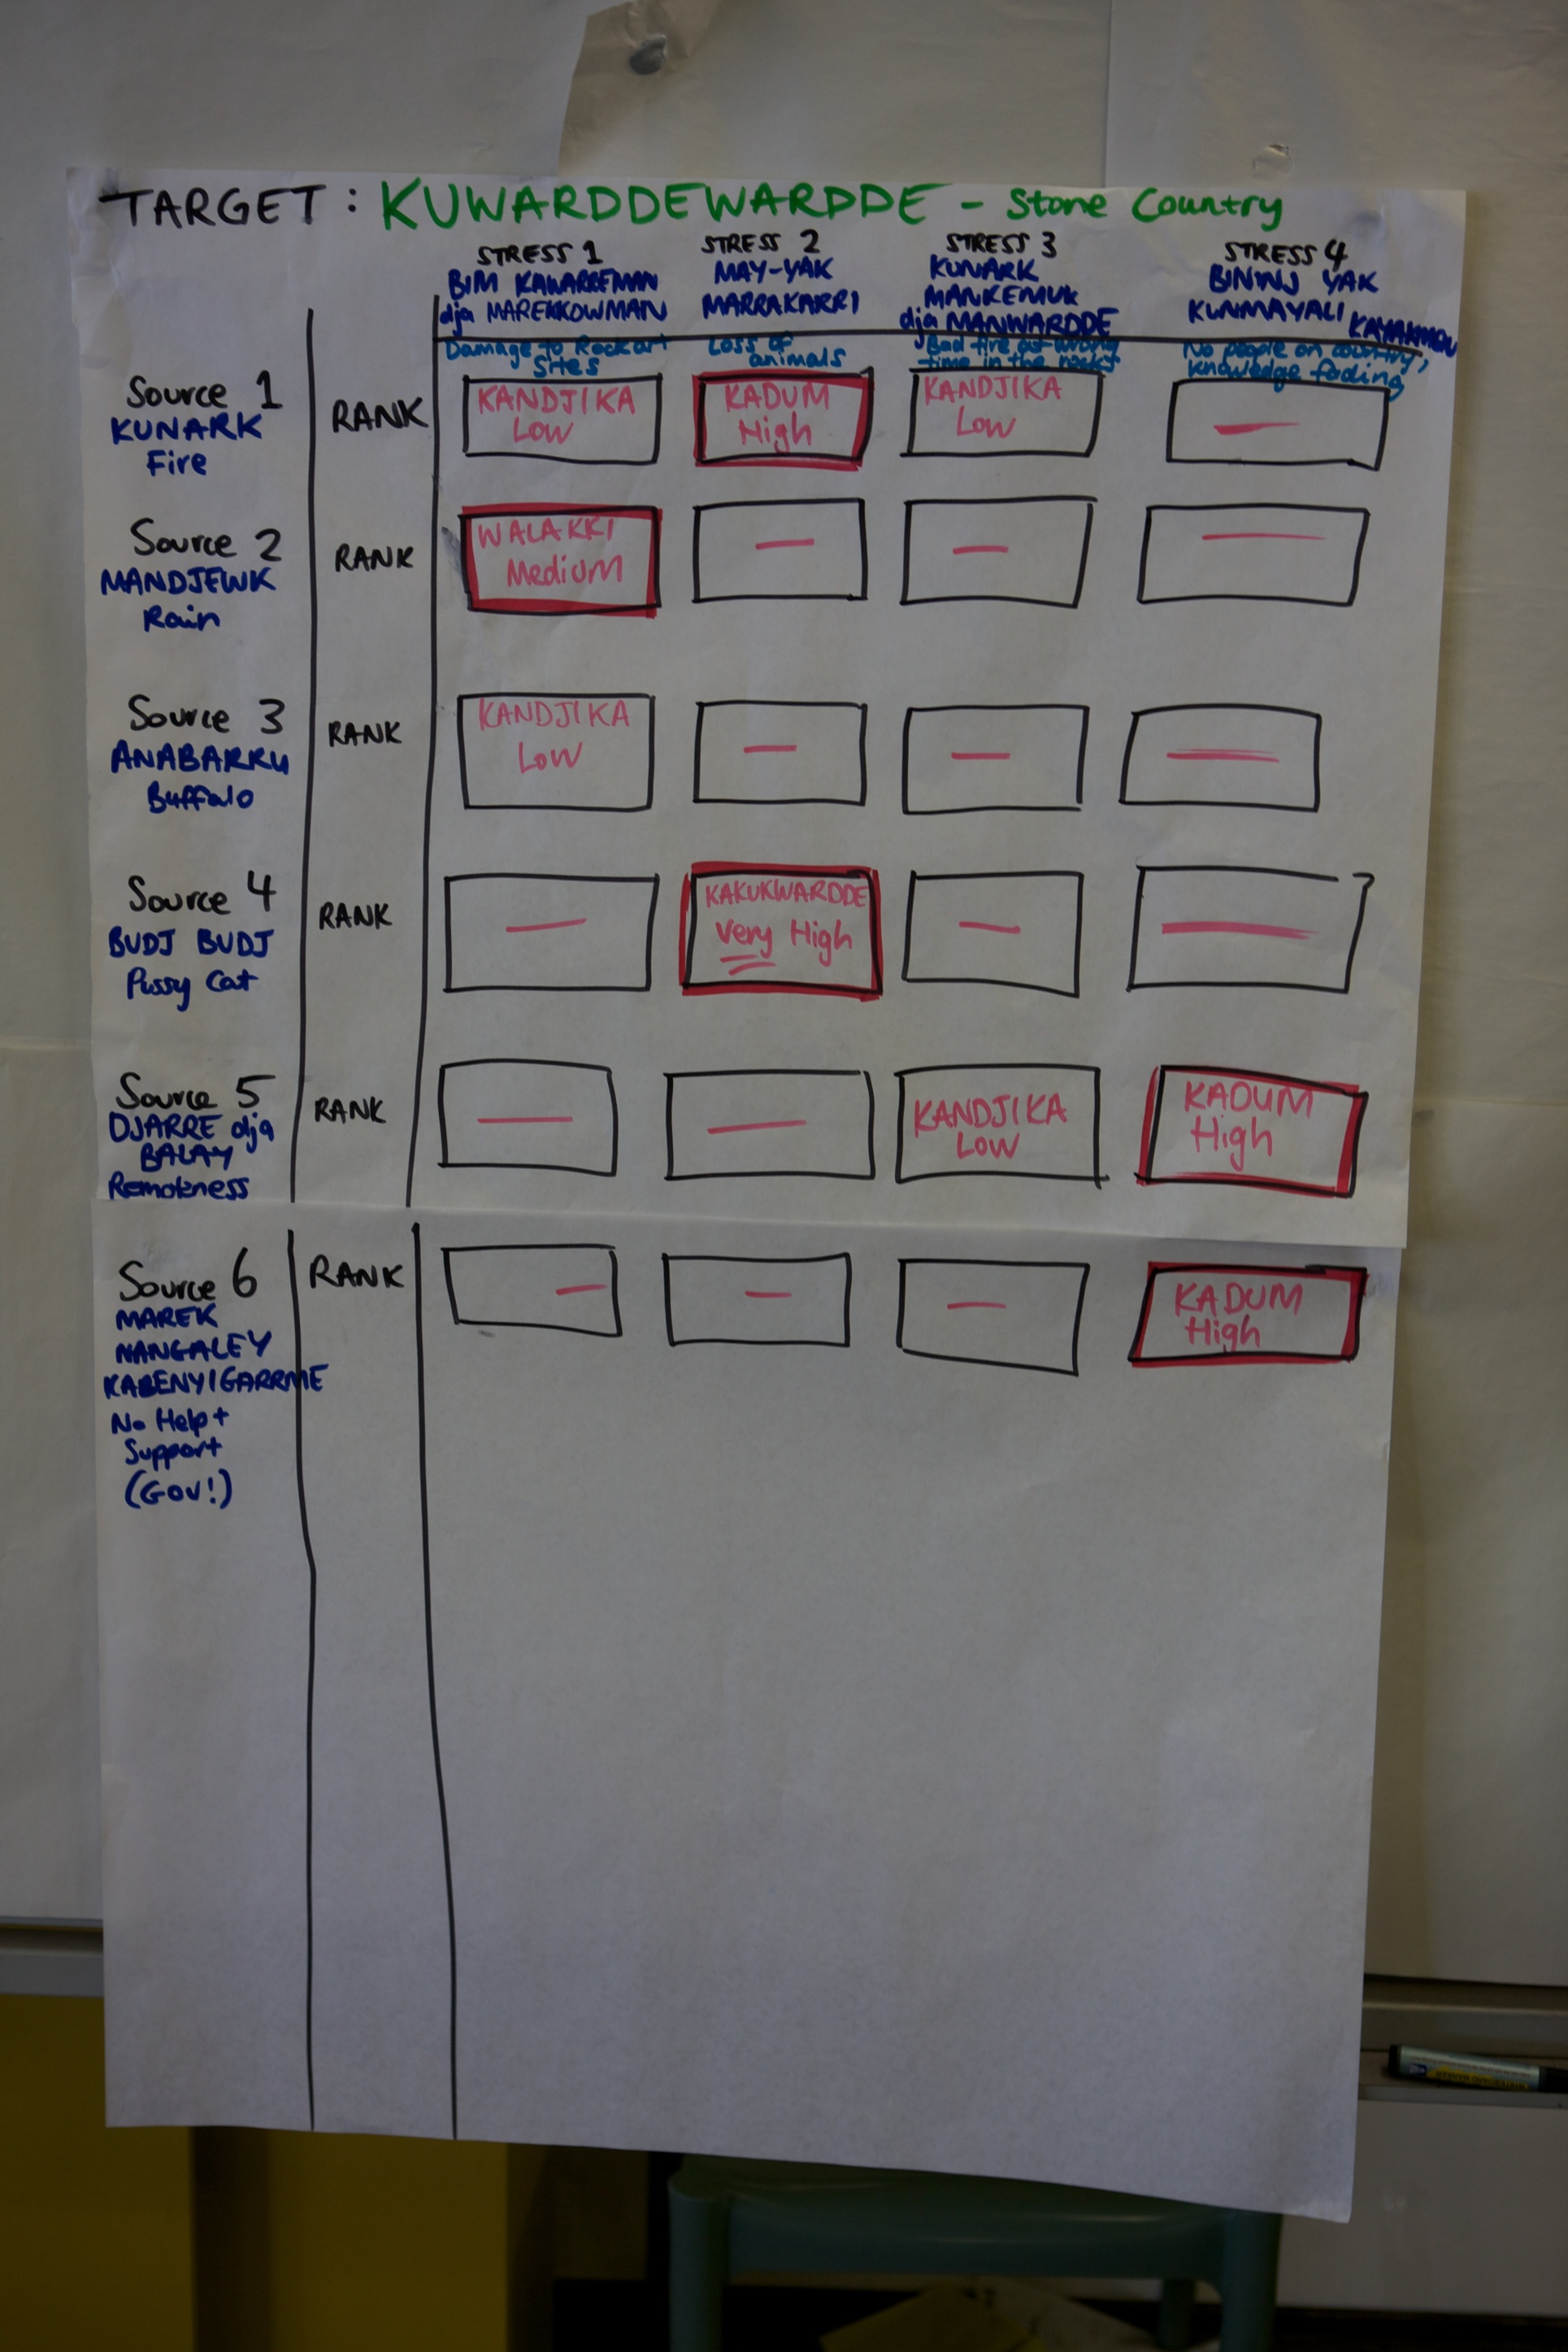 TARGET: KUWARDDEWARDDE - Stone Country
STRESS 1
BIM KAWARREMAN
dja MAREKKOWMAN
Damage to Rock art
Sites
STRESS 2
MAY-YAK
MARRAKARRI
Loss of
animals
STRESS 3
KUNARK
MANKEMUK
dja MANWARDDE
Bad fire at wrong
time in the rocks
STRESS 4
BININJ YAK
KUNMAYALI
No people on country,
knowledge fading
Source 1
KUNARK
Fire
RANK
KANDJIKA
Low
KADUM
High
KANDJIKA
Low
—
Source 2
MANDJEWK
Rain
RANK
WALAKKI
Medium
—
—
—
Source 3
ANABARRU
Buffalo
RANK
KANDJIKA
Low
—
—
—
Source 4
BUDJ BUDJ
Pussy Cat
RANK
—
KAKUKWARDDE
Very High
—
—
Source 5
DJARRE dja
BALAY
Remoteness
RANK
—
—
KANDJIKA
Low
KADUM
High
Source 6
MAREK
NANGALEY
KABENYIGARRME
No Help +
Support
(Gov!)
RANK
—
—
—
KADUM
High